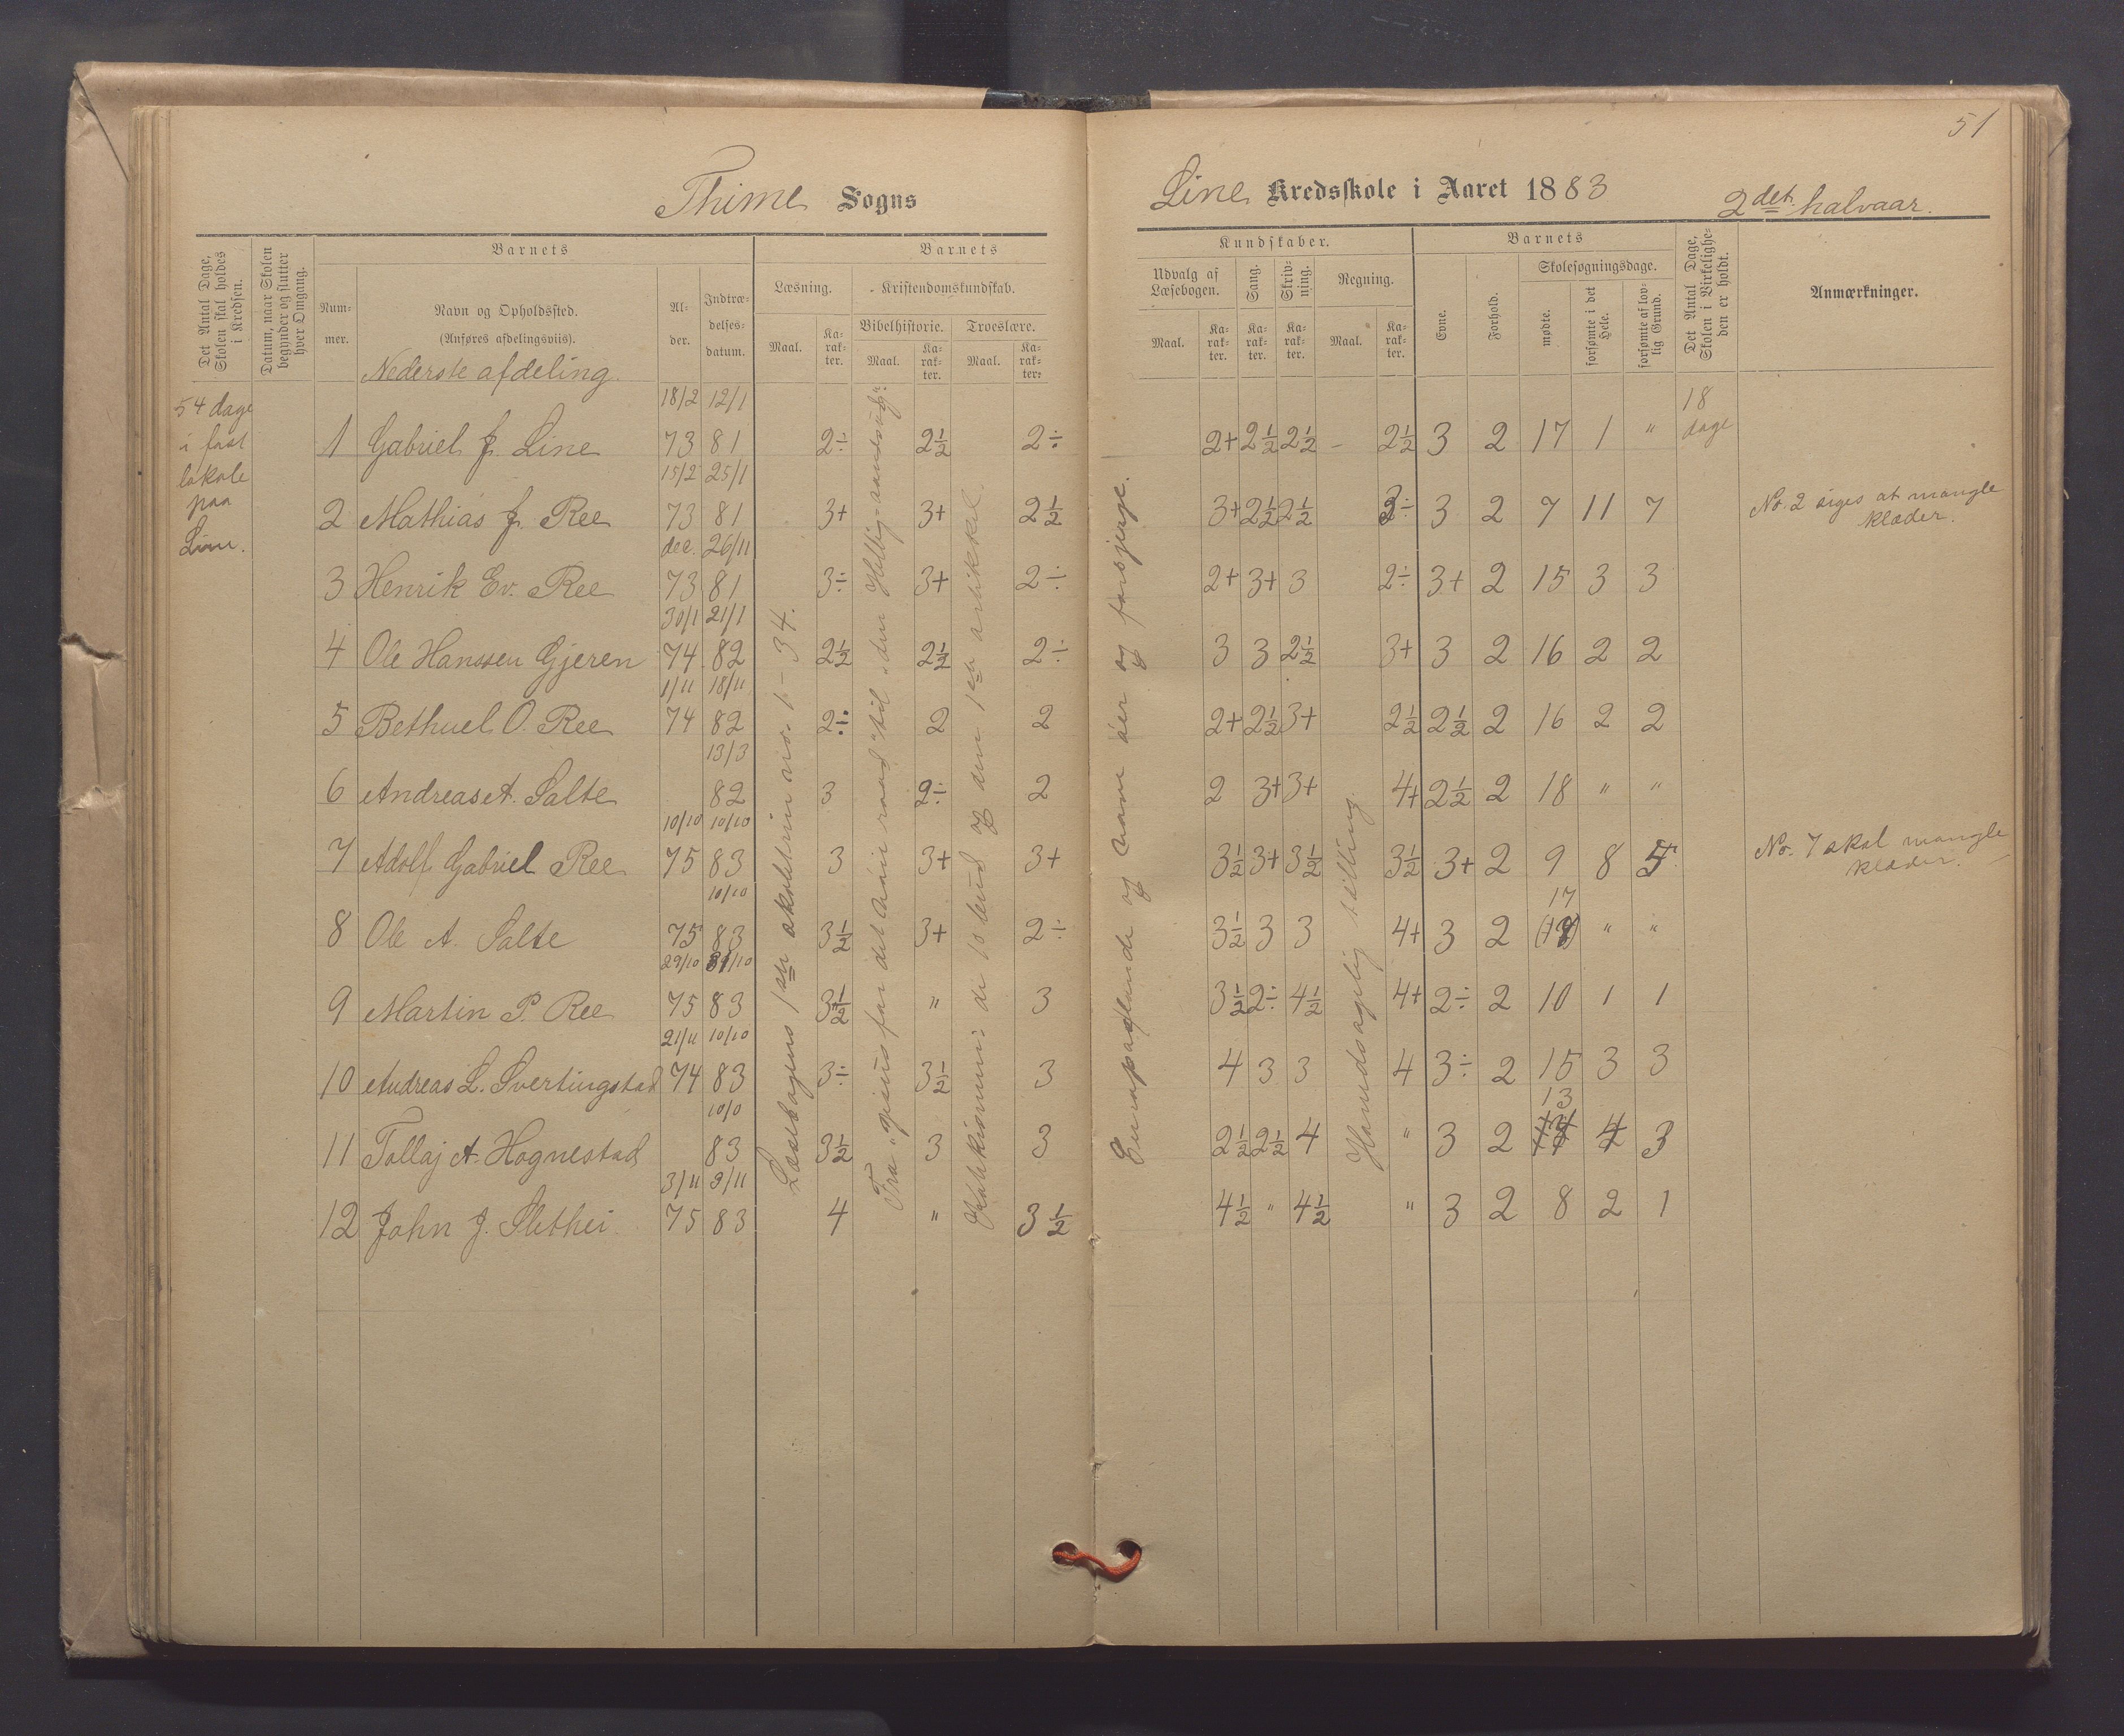 51
Thime Sogns
Line Kredsskole i Aaret 1883 2det halvaar.
Det Antal Dage, Skolen skal holdes i Kredsen.
Datum, naar Skolen begynder og slutter hver Omgang.
Barnets
Nummer.
Navn og Opholdssted.
(Anføres afdelingsviis).
Alder.
Indtrædelsesdatum.
Barnets
Læsning.
Maal.
Karakter.
Kristendomskundskab.
Bibelhistorie.
Maal.
Karakter.
Troeslære.
Maal.
Karakter.
Kundskaber.
Udvalg af Læsebogen.
Maal.
Karakter.
Sang.
Karakter.
Skrivning.
Karakter.
Regning.
Maal.
Karakter.
Barnets
Evne.
Forhold.
Skolesøgningsdage.
mødte.
forsømte i det Hele.
forsømte af lovlig Grund.
Det Antal Dage, Skolen i Virkeligheden er holdt.
Anmærkninger.
Nederste afdeling
54 dage
i fast
lokale
paa
Line.
18/2 12/1
1 Gabriel J. Line 73 81 2÷ 2½ 2÷ 2+ 2½ 2½ – 2½ 3 2 17 1 " 18 dage
15/2 25/1
2 Mathias J. Ree 73 81 3+ 3+ 2½ 3+ 2½ 2½ 3÷ 3 2 7 11 7 No. 2 siges at mangle klæder.
dec. 26/11
3 Henrik Ev. Ree 73 81 3÷ 3+ 2÷ 2+ 3+ 3 2÷ 3+ 2 15 3 3
30/1 21/1
4 Ole Hanssen Gjeren 74 82 2½ 2½ 2÷ 3 3 2½ 3+ 3 2 16 2 2
1/11 18/11
5 Bethuel O. Ree 74 82 2÷ 2 2 2+ 2½ 3+ 2½ 2½ 2 16 2 2
13/3
6 Andreas A. Salte 82 3 2÷ 2 2 3+ 3+ 4+ 2½ 2 18 " "
10/10 10/10
7 Adolf Gabriel Ree 75 83 3 3+ 3+ 3½ 3+ 3½ 3½ 3+ 2 9 8 5 No. 7 skal mangle klæder.
10/10
8 Ole A. Salte 75 83 3½ 3+ 2÷ 3½ 3 3 4+ 3 2 17 " "
29/10 31/10
9 Martin P. Ree 75 83 3½ " 3 3½ 2÷ 4½ 4+ 2÷ 2 10 1 1
21/11 10/10
10 Andreas L. Svertingstad 74 83 3÷ 3½ 3 4 3 3 4 3÷ 2 15 3 3
10/0
11 Tollaj A. Hognestad 83 3½ 3 3 2½ 2½ 4 " 3 2 13 4 3
3/11 9/11
12 John J. Slethei 75 83 4 " 3½ 4½ " 4½ " 3 2 8 2 1
Læsebogens 1ste skoletrin nr. 1 - 34.
Fra "Jesus for det høie raad" til "den Hellig-aands udg."
Katekismus: de 10 bud og den 1ste artikkel.
Europas lande og nogle øer og
Mundtlig tælling.